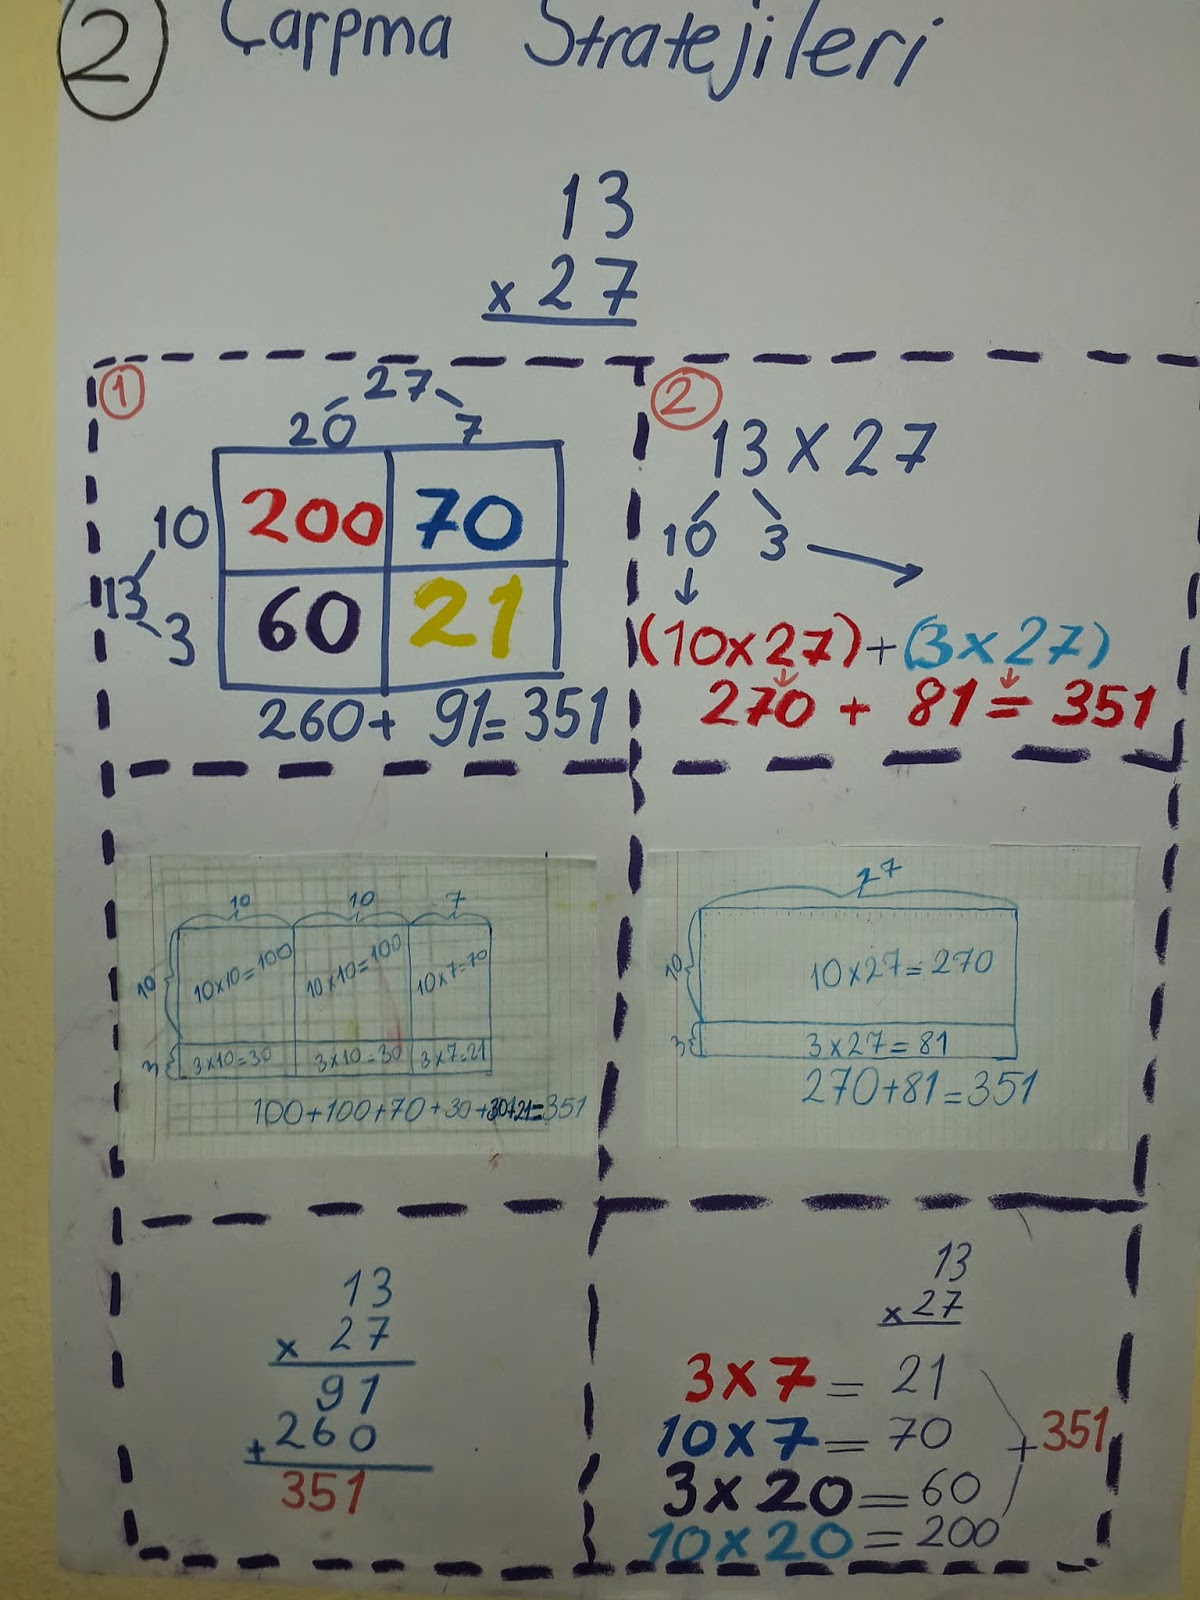 2 Çarpma Stratejileri
13
x 27
1
27
20 7
10 200 70
13
3 60 21
260 + 91 = 351
2
13 x 27
10 3
(10x27)+(3x27)
270 + 81 = 351
10 10 7
10 10x10=100 10x10=100 10x7=70
3 3x10=30 3x10=30 3x7=21
100+100+70+30+30+21=351
27
10 10x27=270
3 3x27=81
270+81=351
13
x 27
91
+ 260
351
13
x 27
3x7= 21
10x7= 70 + 351
3x20= 60
10x20= 200